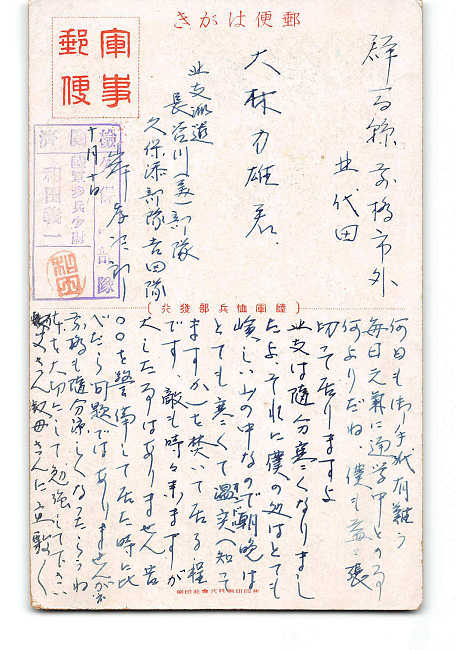 郵便はがき
軍事
郵便
群馬縣前橋市外
北代田
大林力雄君
北支派遣
長谷川(美)部隊
久保添部隊吉田隊
十月十日
和田義一
(陸軍恤兵部發行)
何日も御手紙有難う
毎日元氣に通学中との事
何よりだね、僕も益々張
切って居りますよ
北支は随分寒くなりまし
たよ、それに僕の処はとても
嶮しい山の中なので朝晩は
とても寒くて温突(知って
ますか)を焚いて居る程
です、敵も時々来ますが
大した事はありません 昔
〇〇を警備して居た時に比
べたら問題ではありませんが
前橋も随分涼しくなったらうね
体を大切にして勉強して下さい
叔父さん叔母さんに宜敷く